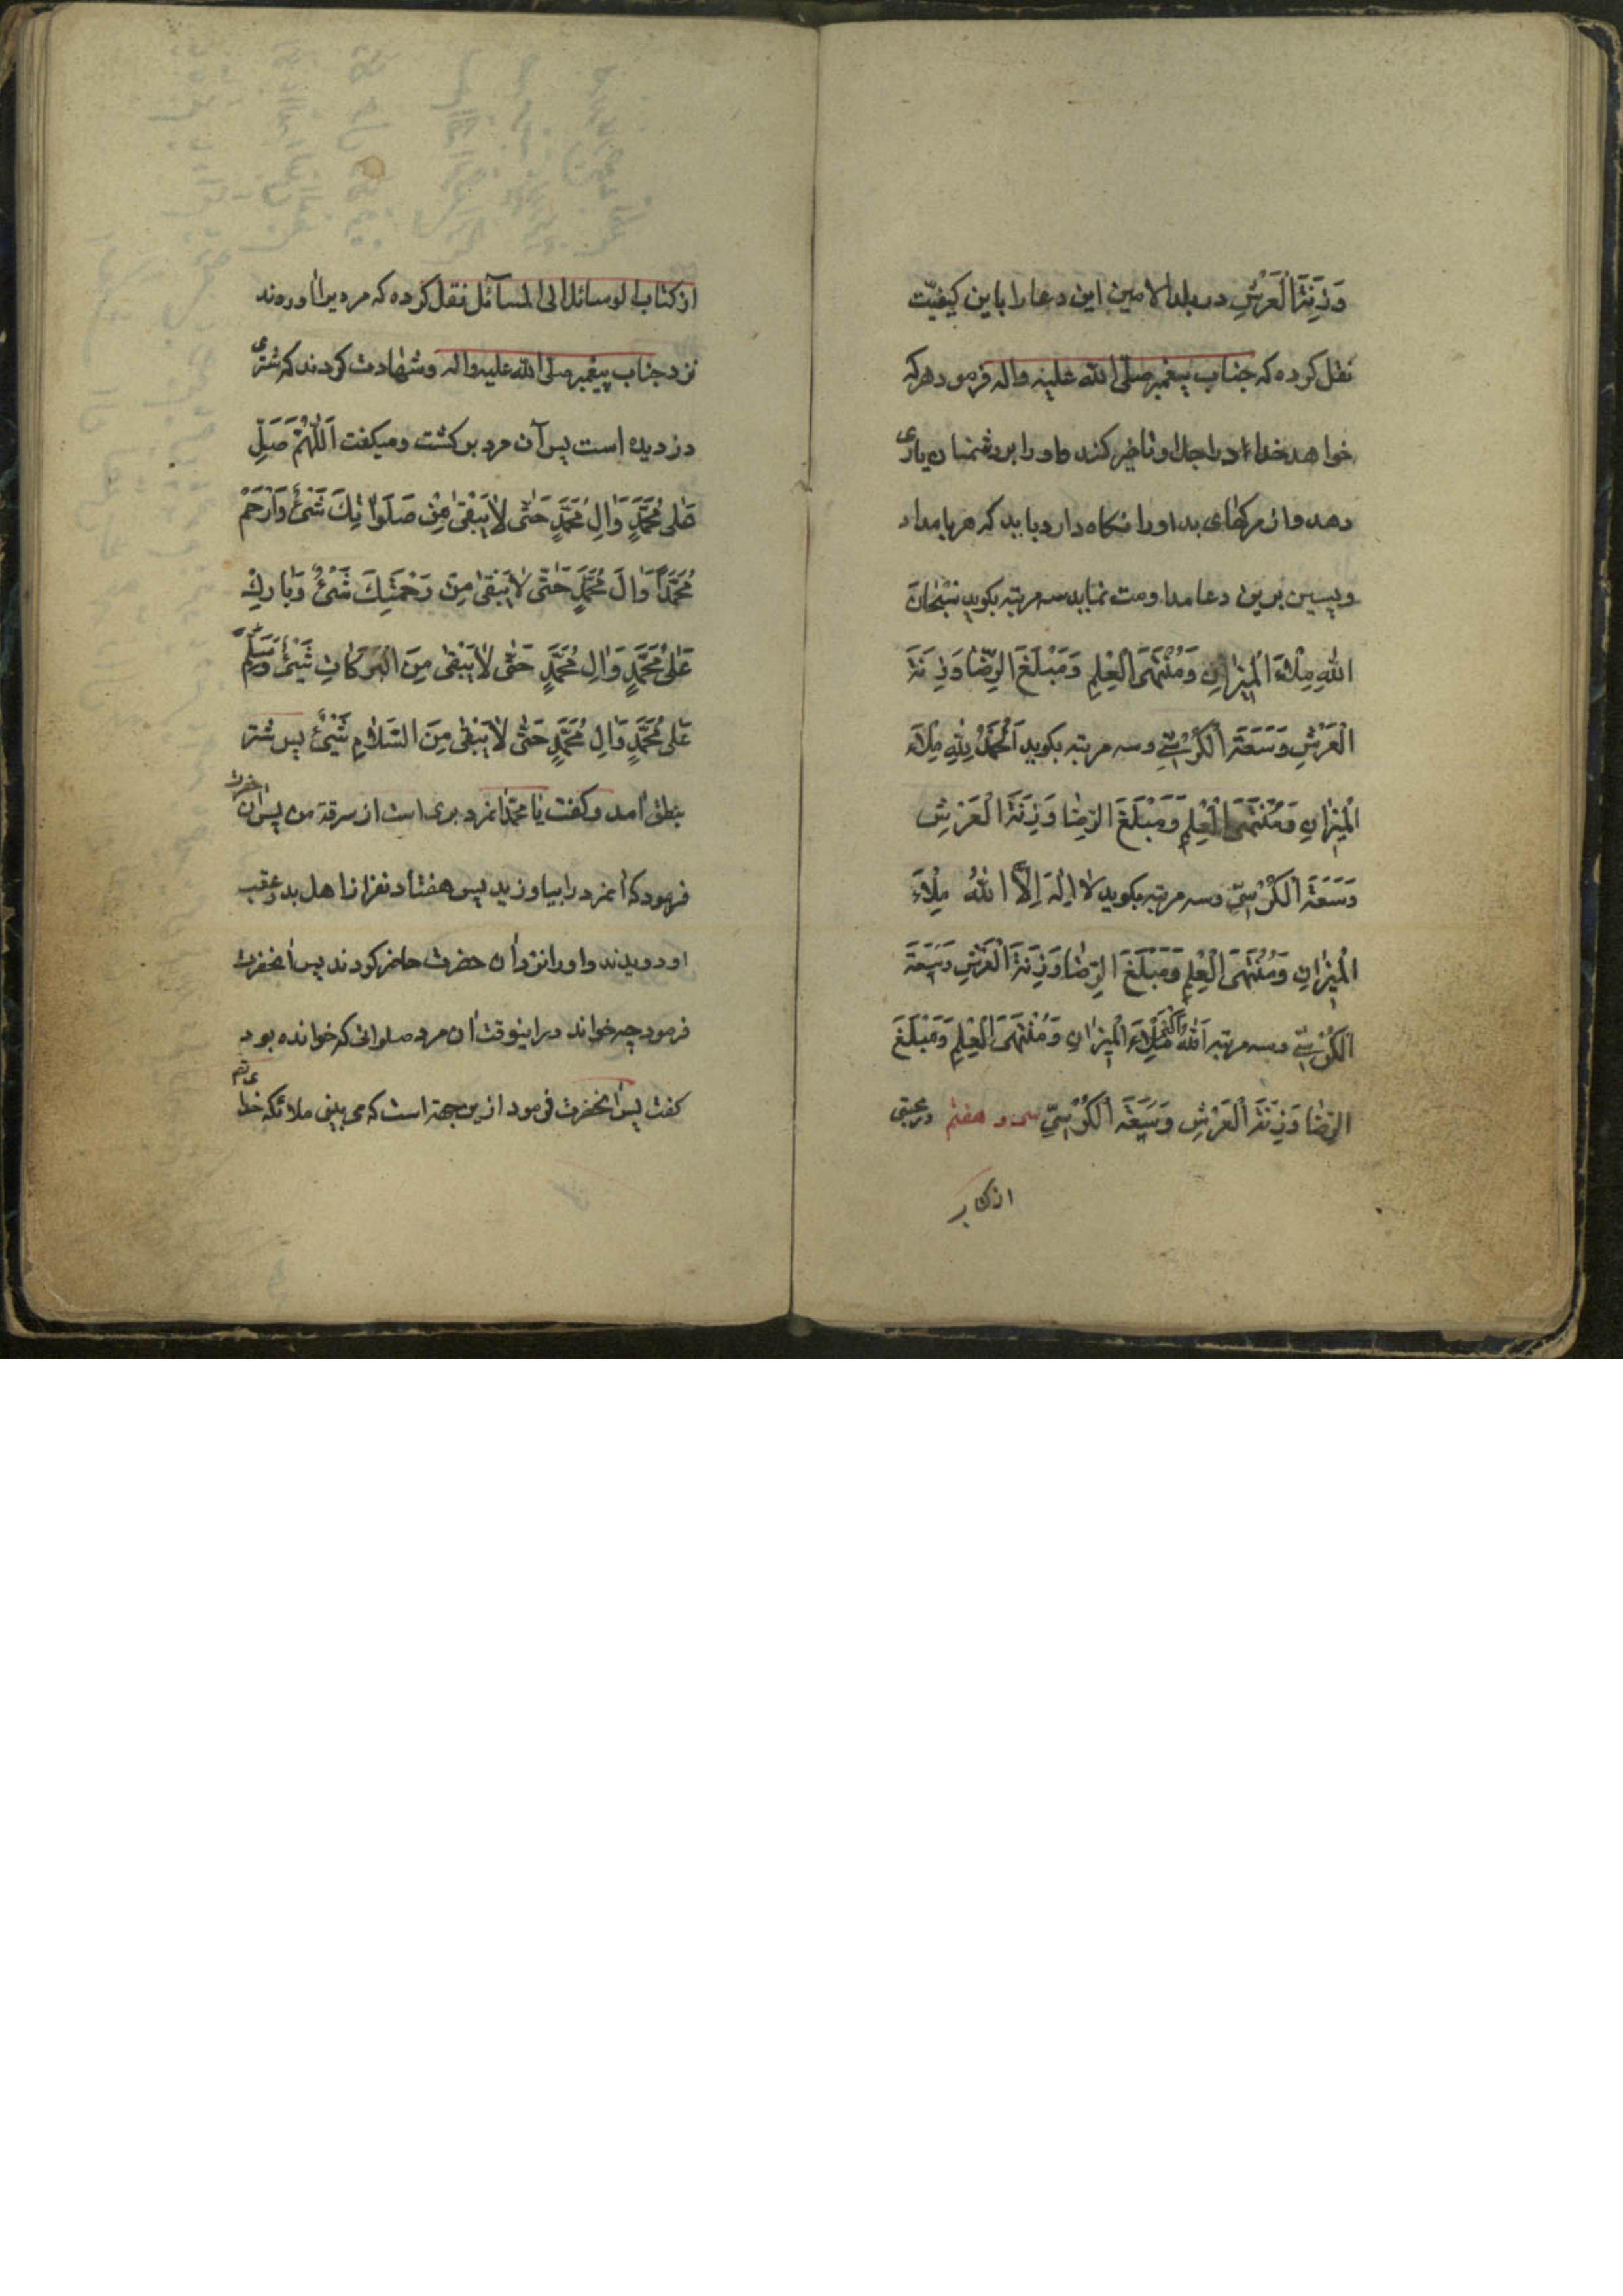 وَزِنَةَ الْعَرْشِ در بلد الامین این دعا را باین کیفیّت
نقل کرده که جناب پیغمبر صلّی الله علیه واله فرمود هرکه
خواهد خداء در اجل او تاخیر کند و او را بر دشمنان یاری
دهد و از مرکهای بد او را نکاه دارد باید که هر بامداد
و پسین برین دعا مداومت نماید سه مرتبه بکوید سُبْحٰانَ
اللهِ مِلْاءَ الْمیٖزٰانِ وَمُنْتَهَی الْعِلْمِ وَمَبْلَغَ الرِّضٰا وَزِنَةَ
الْعَرْشِ وَسَعَةَ الْکُرْسِیِّ و سه مرتبه بکوید اَلْحَمْدُ لِلّٰهِ مِلْاءَ
الْمیٖزٰانِ وَمُنْتَهَی الْعِلْمِ وَمَبْلَغَ الرِّضٰا وَزِنَةَ الْعَرْشِ
وَسَعَةَ الْکُرْسِیِّ و سه مرتبه بکوید لٰا اِلٰهَ اِلَّا اللهُ مِلْاءَ
الْمیٖزٰانِ وَمُنْتَهَی الْعِلْمِ وَمَبْلَغَ الرِّضٰا وَزِنَةَ الْعَرْشِ وَسَعَةَ
الْکُرْسِیِّ و سه مرتبه اَللهُ اَکْبَرُ مِلْاءَ الْمیٖزٰانِ وَمُنْتَهَی الْعِلْمِ وَمَبْلَغَ
الرِّضٰا وَزِنَةَ الْعَرْشِ وَسَعَةَ الْکُرْسِیِّ سی و هفتم در مجتبی
از کتاب
از کتاب الوسائل الی المسآئل نقل کرده که مردیرا اوردند
نزد جناب پیغمبر صلی الله علیه واله وشهادت کردند که شتری
دزدیده است پس آن مرد برکشت و میکفت اَللّٰهُمَّ صَلِّ
عَلیٰ مُحَمَّدٍ وَاٰلِ مُحَمَّدٍ حَتّٰی لٰا یَبْقیٰ مِنْ صَلَوٰاتِکَ شَیْئٌ وَارْحَمْ
مُحَمَّداً وَاٰلَ مُحَمَّدٍ حَتّٰی لٰا یَبْقیٰ مِنْ رَحْمَتِکَ شَیْئٌ وَبٰارِکْ
عَلیٰ مُحَمَّدٍ وَاٰلِ مُحَمَّدٍ حَتّٰی لٰا یَبْقیٰ مِنَ الْبَرَکٰاتِ شَیْئٌ وَسَلِّمْ
عَلیٰ مُحَمَّدٍ وَاٰلِ مُحَمَّدٍ حَتّٰی لٰا یَبْقیٰ مِنَ السَّلٰامِ شَیْئٌ پس شتر
بنطق آمد و کفت یا محمّد اینمرد بری است از سرقة من پس ان حضرت
فرمود که انمرد را بیاورید پس هفتاد نفر از اهل بدر عقب
او دویدند و او را نزد آن حضرت حاضر کردند پس آنحضرت
فرمود چه خواند در اینوقت آن مرد صلواتی که خوانده بود
کفت پس آنحضرت فرمود ازین جهة است که می بینی ملائکه خدای